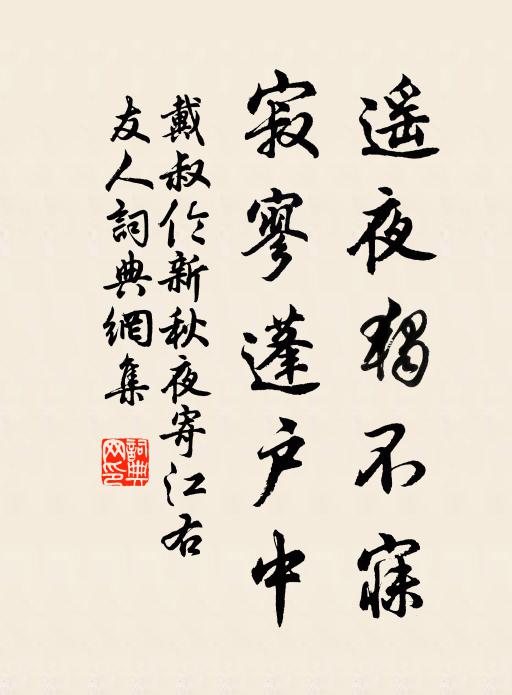 遥夜獨不寐
寂寥蓬户中
戴叔伦新秋夜寄江右
友人詞典網集
詞典
网印